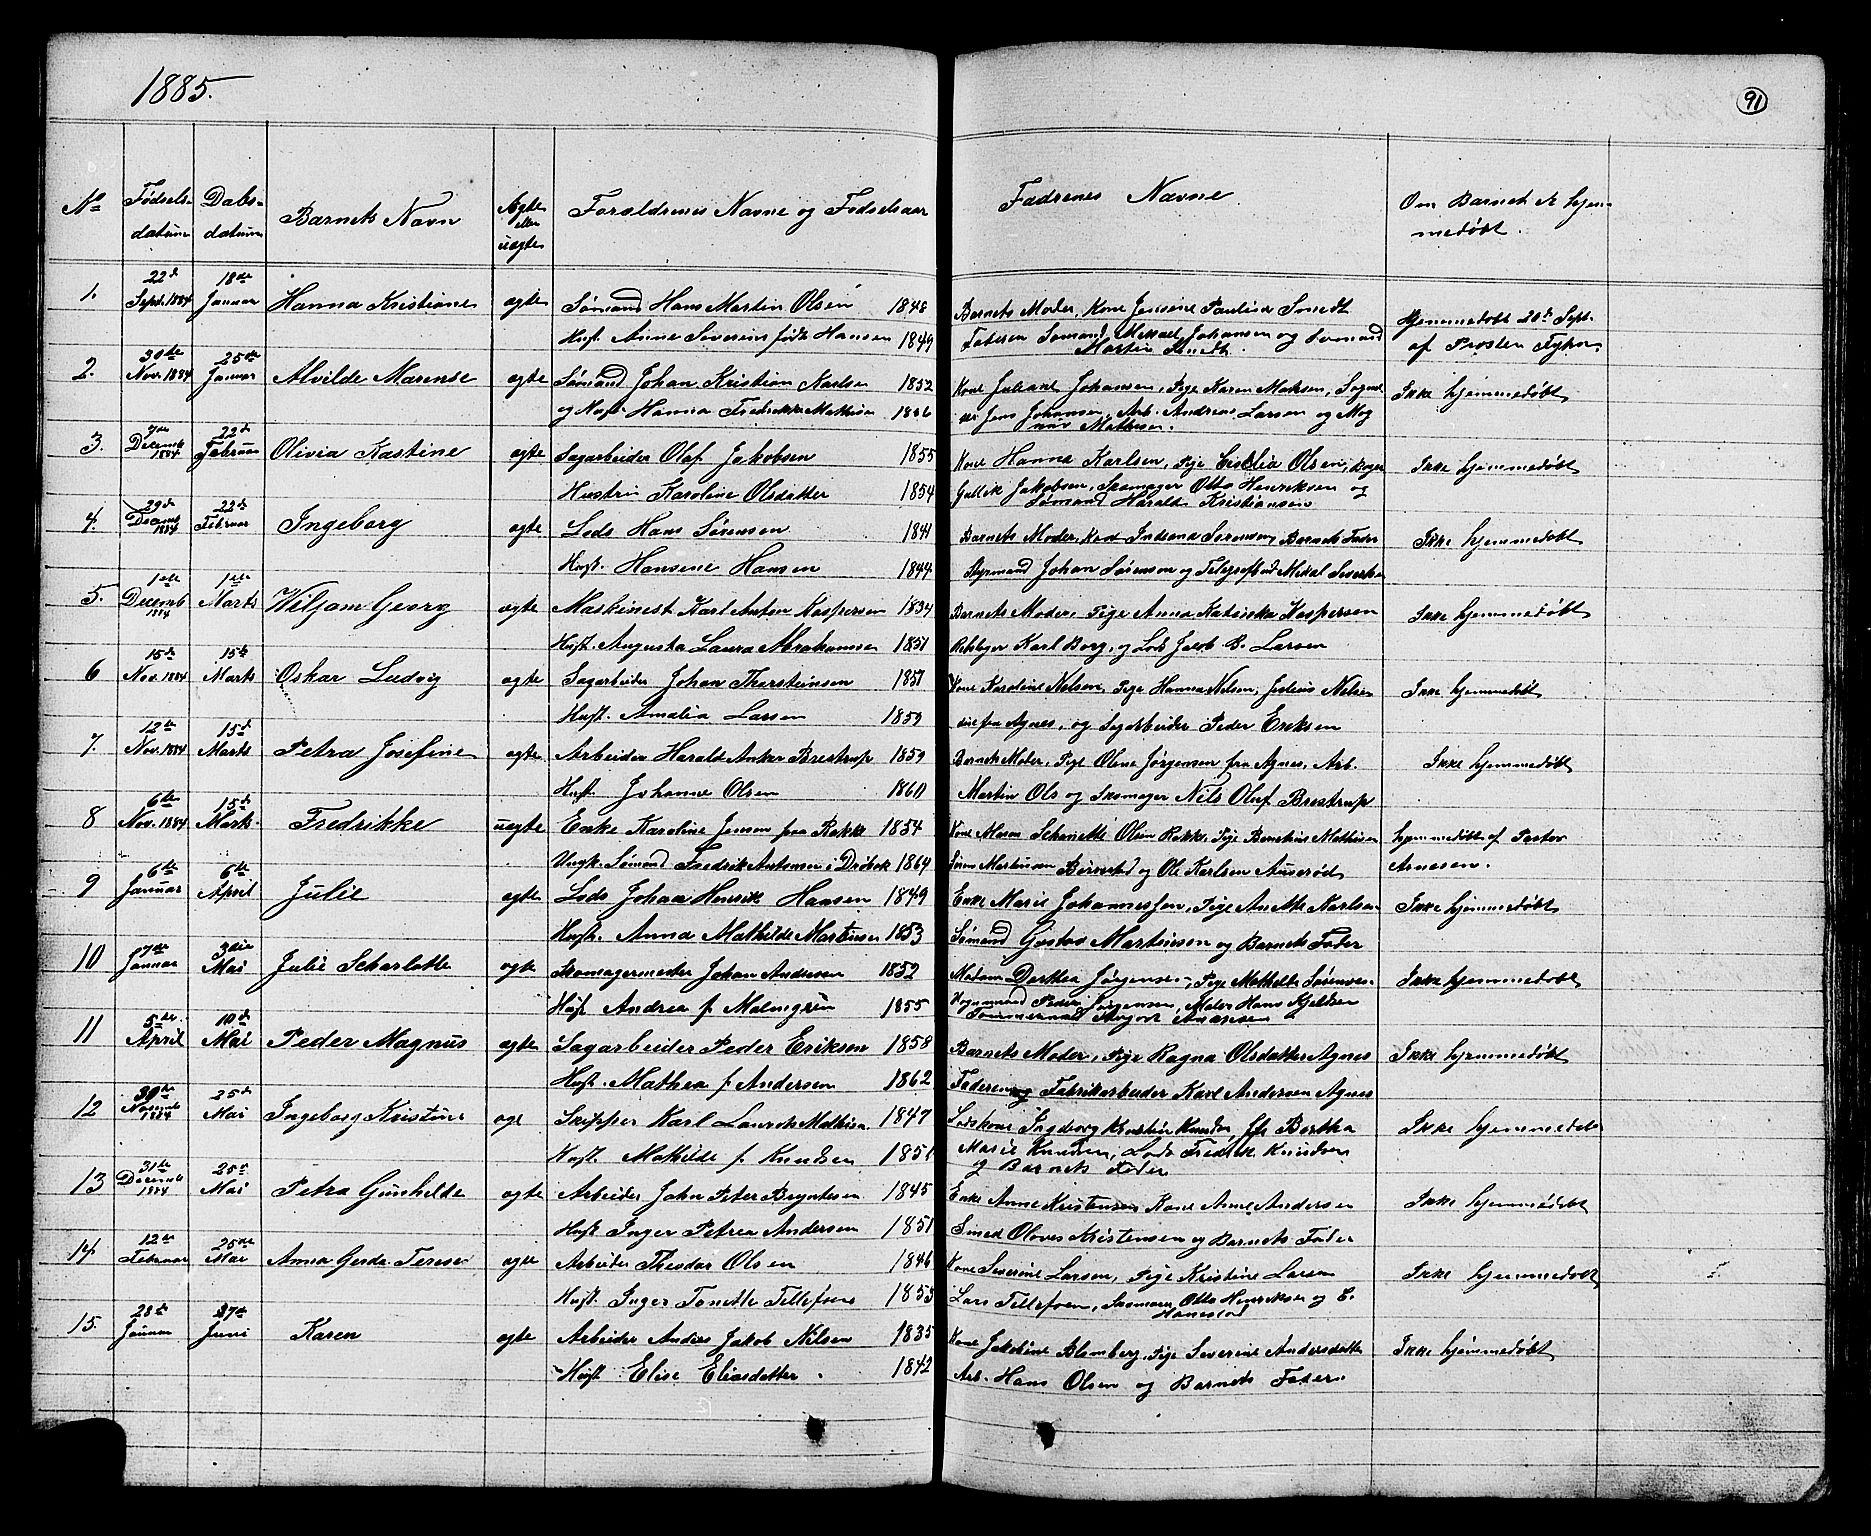 1885.
91
No Fødsels- datum Dabs- datum Barnets Navn Ægte eller uægte Foraldrenes Navne og Fødselsaar Fadrenes Navne Om Barnet er hjem- medøbt.
1. 22d Sept. 1884 18de Januar Hanna Kristiane ægte Sømand Hans Martin Olsen 1848 Barnets Moder, Kone Jensine Pauline Smedt Hjemmedøbt 20de Sept.
Hust. Anne Severine født Hansen 1849 Faderen Sømand Mikael Johansen og Sømand Martin Smedt. af Prosten
2. 30te Nov. 1884 25de Januar Alvilde Marense ægte Sømand Johan Kristian Karlsen 1852 Kone Juliane Johansen, Pige Karen Maksen, Ikke hjemmedøbt
og Hust. Hanna Fredrikke Mathisen 1856 Jens Johansen, Arb. Andreas Larsen og Mag nus Mathisen.
3. 7de Decemb 1884 22d Februar Olivia Kastine ægte Sagarbeider Olaf Jakobsen 1855 Kone Hanna Karlsen, Pige Cecilia Olsen, Ikke hjemmedøbt
Hustru Karoline Olsdatter 1854 Gullik Jakobsen, Skomager Otto Henriksen og Sømand Harald Kristiansen
4. 29d Decemb 1884 22d Februar Ingeborg ægte Lods Hans Sørensen 1841 Barnets Moder, Kone Indiana Sørensen, Barnets Fader Ikke hjemmedøbt
Hust. Hansine Hansen 1844 Styrmand Johan Sørensen og
5. 1ste Decemb 1884 1ste Marts Wiljam Georg ægte Maskinist Karl Anton Kaspersen 1834 Barnets Moder, Pige Anna Katinka Kaspersen Ikke hjemmedøbt
Hust. Augusta Laura Abrahamsen 1851 Karl Borg, og Lods Jacob B. Larsen
6 15de Nov. 1884 15de Marts Oskar Ludvig ægte Sagarbeider Johan Thorsteinsen 1857 Kone Karoline Nelsen, Pige Hanna Nelsen, Julius Nelsen Ikke hjemmedøbt
Hust. Amalia Larsen 1859 fra Agnes, og Peder Eriksen
7. 12te Nov. 1884 15d Marts Petra Josefine ægte Arbeider Harald Anker Brestrup 1859 Barnets Moder, Pige Oline Jørgensen fra Agnes, Arb. Ikke hjemmedøbt
Hust. Johanne Olsen 1860 Martin Ols og Skomager Nils Oluf Brestrup
8 6te Nov. 1884 15d Marts Fredrikke uægte Enke Karoline Jensen fra Rakke 1854 Kone Maren Schanette Olsen Rakke, Pige Mathisen hjemmedøbt af Pastor
Ungk. Sømand Fredrik Antonsen i Drøbak 1864 Martinsen og Ole Karlsen Auserød Arnesen.
9 6te Januar 6te April Julie ægte Lods Johan Henrik Hansen 1849 Enke Marie Johannessen, Pige Anette Karlsen Ikke hjemmedøbt
Hust. Anna Mathilde Martinsen 1853 Sømand Gustav Martinsen og Barnets Fader
10 7de Januar 3die Mai Julie Scharlotte ægte Skomagermester Johan Andersen 1852 Madam Dorthea Jørgensen, Pige Mathilde Sørensen Ikke hjemmedøbt
Hust Andrea f. Malmgrün 1855 Peder Jørgensen, Maler Hans Kjeldsen Tømmermand August Amansen
11 5te April 10d Mai Peder Magnus ægte Sagarbeider Peder Eriksen 1858 Barnets Moder, Pige Ragna Olsdatter Agnes Ikke hjemmedøbt
Hust. Mathea f. Andersen 1862 Faderen og Fabrikarbeider Karl Andersen Agnes
12 30te Novemb 1884 25d Mai Ingeborg Kristine ægte Skipper Karl Laurits Mathisen 1847 Lodskone Ingeborg Kristine Knudsen, Bertha Ikke hjemmedøbt
Hust. Mathilde f. Knudsen 1851 Marie Knudsen, Lods Fredrik Knudsen og Barnets Fader
13 31te Decemb 1884 25d Mai Petra Gunhilde ægte Arbeider John Peter Bryntesen 1845 Enke Anne Kristensen Kone Anne Andersen Ikke hjemmedøbt
Hust Inger Petrea Andersen 1851 Smed Olaves Kristensen og Barnets Fader
14. 12te Februar 25de Mai Anna Gerda Terese ægte Arbeider Theodor Olsen 1846 Kone Severine Larsen, Pige Kristine Larsen Ikke hjemmedøbt
Hust. Inger Tonette Tellefsen 1853 Lars Tellefsen, Skomager Otto Henriksen og C. Hanestad
15. 28de Januar 27de Juni Karen ægte Arbeider Anders Jakob Nilsen 1835 Kone Jakobine Blomberg, Pige Severine Andersdatter Ikke hjemmedøbt
Hust Elise Eliasdatter. 1842 Arb. Hans Olsen og Barnets Fader.